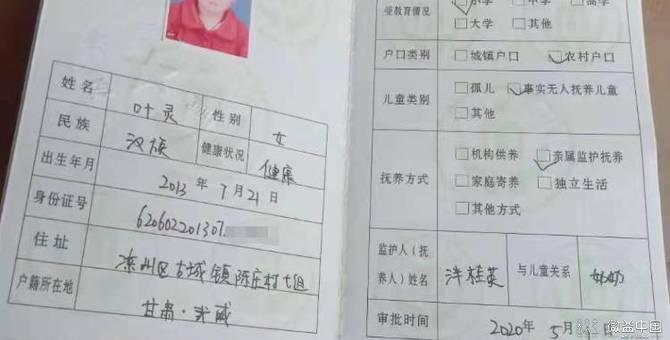 姓名 叶灵 性别 女
民族 汉族 健康状况 健康
出生年月 2013年7月21日
身份证号 620602201307
住址 凉州区古城镇陈庄村七组
户籍所在地 甘肃·武威
受教育情况 小学 中学 高学
大学 其他
户口类别 城镇户口 农村户口
儿童类别 孤儿 事实无人抚养儿童
其他
抚养方式 机构供养 亲属监护抚养
家庭寄养 独立生活
其他方式
监护人(抚
养人)姓名 桂英 与儿童关系
审批时间 2020年5月 日
微益中国